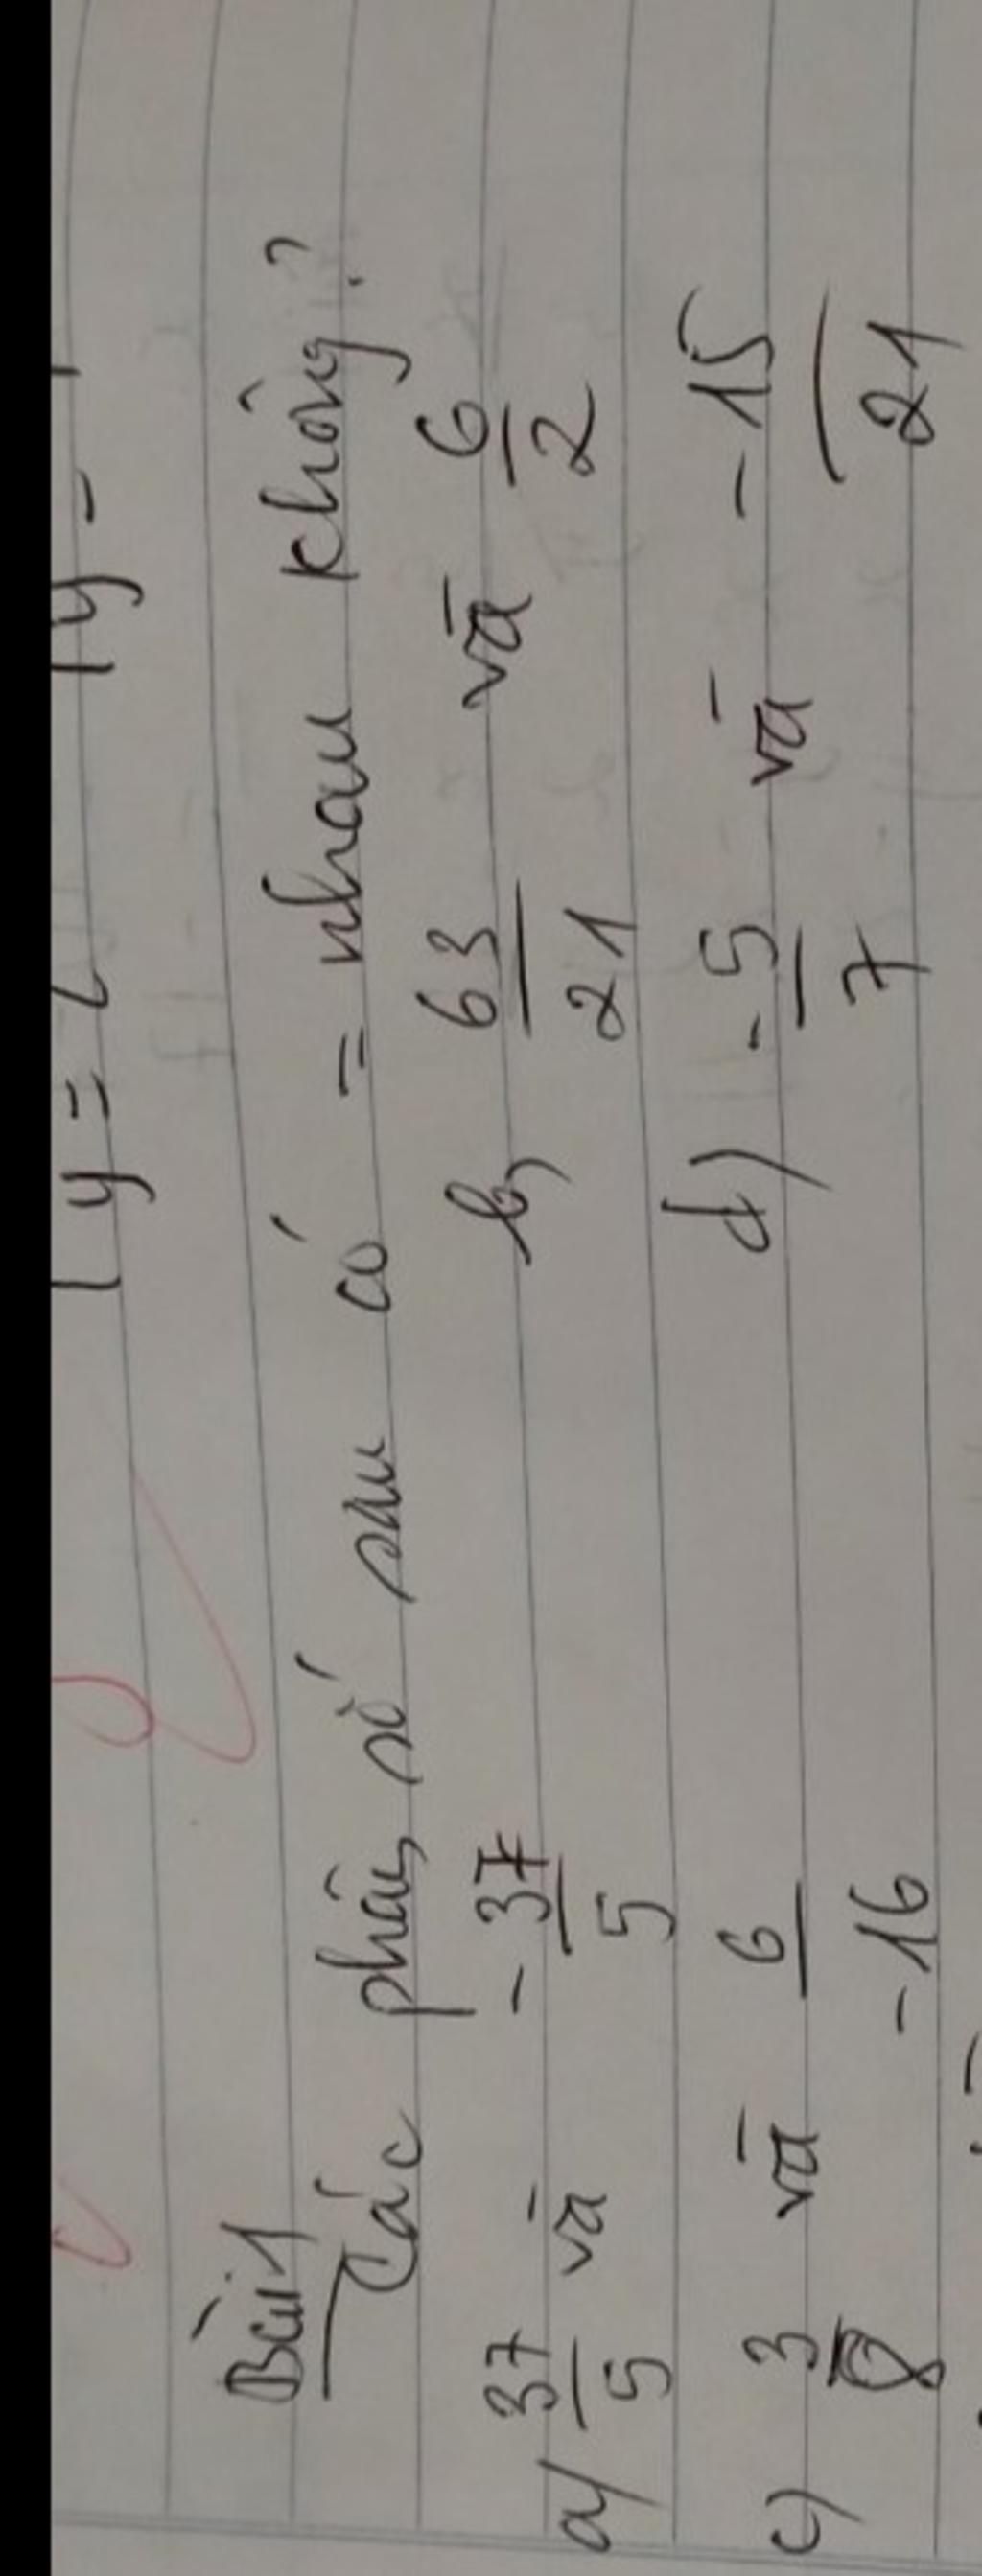 y = 2 y =
Bài 1
Các phân số sau có = nhau không?
a) 37/5 và -37/5 b, 63/21 và 6/2
c) 3/8 và 6/-16 d) -5/7 và -15/21